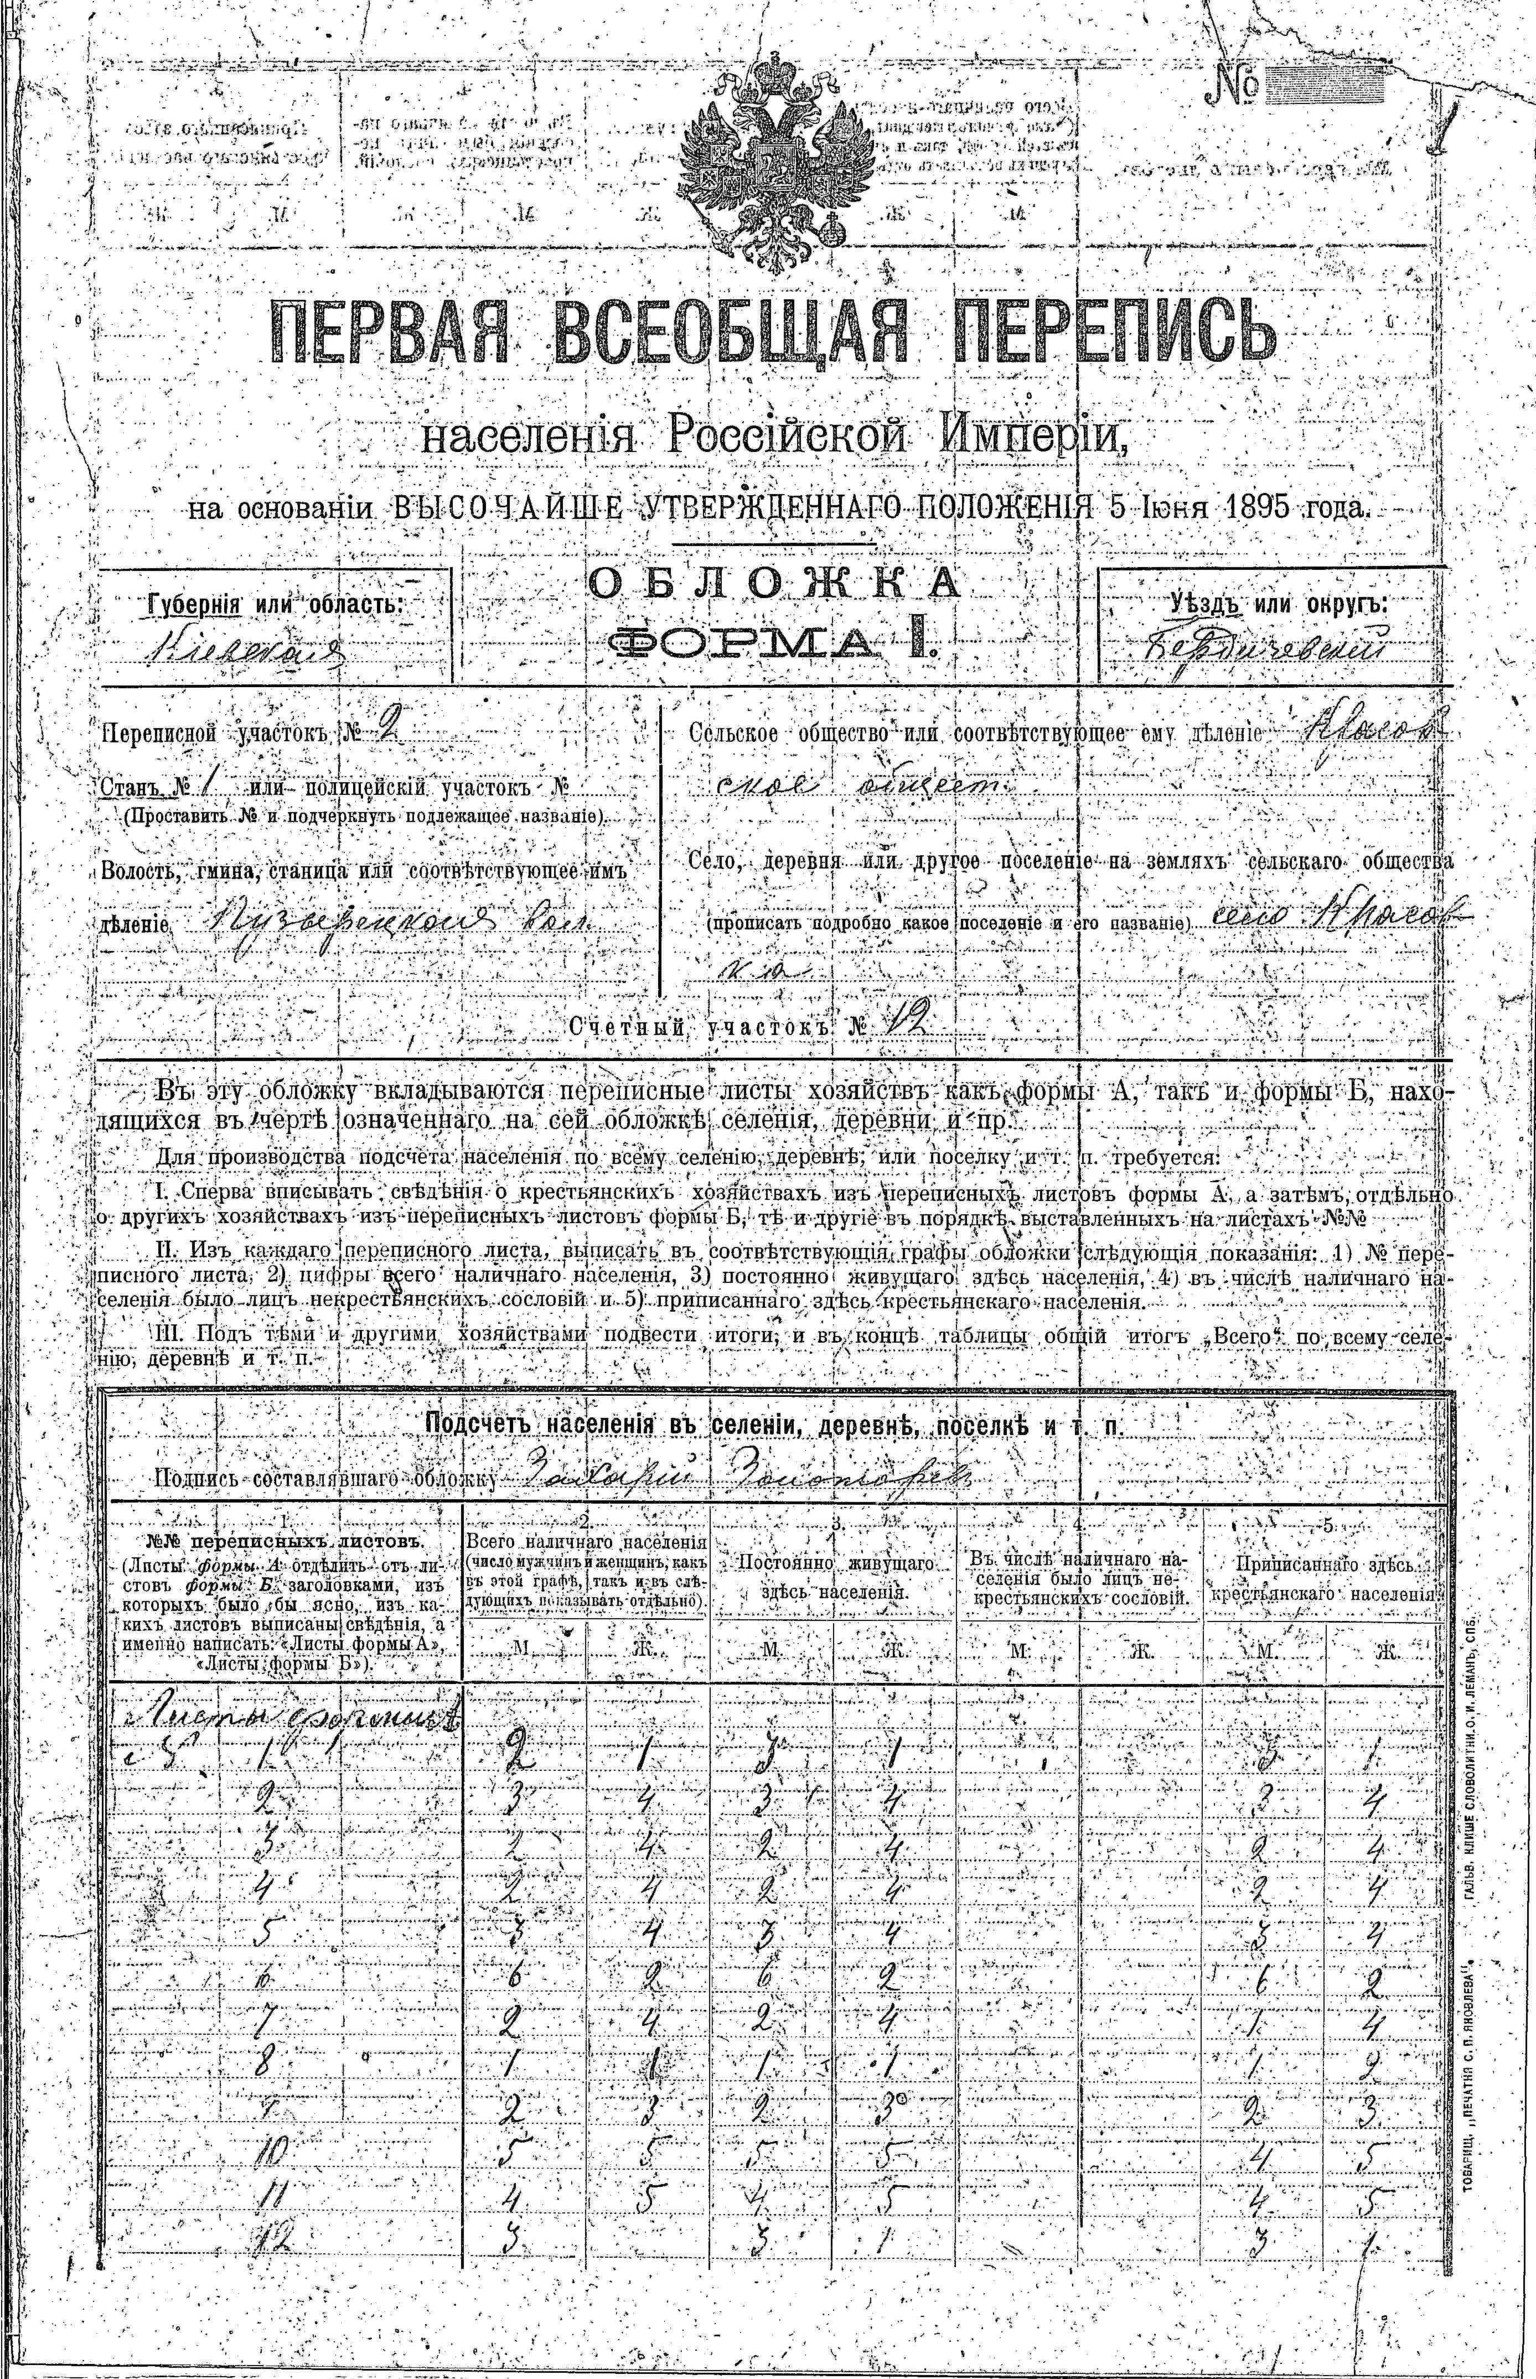 №
ПЕРВАЯ ВСЕОБЩАЯ ПЕРЕПИСЬ
населенія Россійской Имперіи,
на основаніи ВЫСОЧАЙШЕ УТВЕРЖДЕННАГО ПОЛОЖЕНІЯ 5 Іюня 1895 года.
ОБЛОЖКА
ФОРМА I.
Губернія или область:
Кіевская
Уѣздъ или округъ:
Бердичевскій
Переписной участокъ № 2
Станъ № 1 или полицейскій участокъ №
(Проставить № и подчеркнуть подлежащее названіе).
Волость, гмина, станица или соотвѣтствующее имъ
дѣленіе
Сельское общество или соотвѣтствующее ему дѣленіе Красов
ское общест.
Село, деревня или другое поселеніе на земляхъ сельскаго общества
(прописать подробно какое поселеніе и его названіе) село Красов
ка
Счетный участокъ № 12
Въ эту обложку вкладываются переписные листы хозяйствъ какъ формы А, такъ и формы Б, нахо-
дящихся въ чертѣ означеннаго на сей обложкѣ селенія, деревни и пр.
Для производства подсчета населенія по всему селенію, деревнѣ, или поселку и т. п. требуется:
I. Сперва вписывать свѣдѣнія о крестьянскихъ хозяйствахъ изъ переписныхъ листовъ формы А, а затѣмъ, отдѣльно
о другихъ хозяйствахъ изъ переписныхъ листовъ формы Б, тѣ и другіе въ порядкѣ выставленныхъ на листахъ №№
II. Изъ каждаго переписного листа, выписать въ соотвѣтствующія графы обложки слѣдующія показанія: 1) № пере-
писного листа, 2) цифры всего наличнаго населенія, 3) постоянно живущаго здѣсь населенія, 4) въ числѣ наличнаго на-
селенія было лицъ некрестьянскихъ сословій и 5) приписаннаго здѣсь крестьянскаго населенія.
III. Подъ тѣми и другими хозяйствами подвести итоги, и въ концѣ таблицы общій итогъ „Всего“ по всему селе-
нію, деревнѣ и т. п.
Подсчетъ населенія въ селеніи, деревнѣ, поселкѣ и т. п.
Подпись составлявшаго обложку Захарій
1.
№№ переписныхъ листовъ.
(Листы формы А отдѣлить отъ ли-
стовъ формы Б заголовками, изъ
которыхъ было бы ясно, изъ ка-
кихъ листовъ выписаны свѣдѣнія, а
именно написать: «Листы формы А»,
«Листы формы Б»).
2.
Всего наличнаго населенія
(число мужчинъ и женщинъ, какъ
въ этой графѣ, такъ и въ слѣ-
дующихъ показывать отдѣльно).
3.
Постоянно живущаго
здѣсь населенія.
4.
Въ числѣ наличнаго на-
селенія было лицъ не-
крестьянскихъ сословій.
5.
Приписаннаго здѣсь
крестьянскаго населенія
М. Ж. М. Ж. М. Ж. М. Ж.
Листы формы
1 2 1 3 1 3 1
2 3 4 3 4 3 4
3 2 4 2 4 2 4
4 2 4 2 4 2 4
5 3 4 3 4 3 4
6 6 2 6 2 6 2
7 2 4 2 4 1 4
8 1 1 1 1 1 2
9 2 3 2 3 2 3
10 5 5 5 5 4 5
11 4 5 4 5 4 5
12 3 3 1 3 1
ТОВАРИЩ. „ПЕЧАТНЯ С. П. ЯКОВЛЕВА“. ГАЛЬВ. КЛИШЕ СЛОВОЛИТНИ О. И. ЛЕМАНЪ, СПБ.